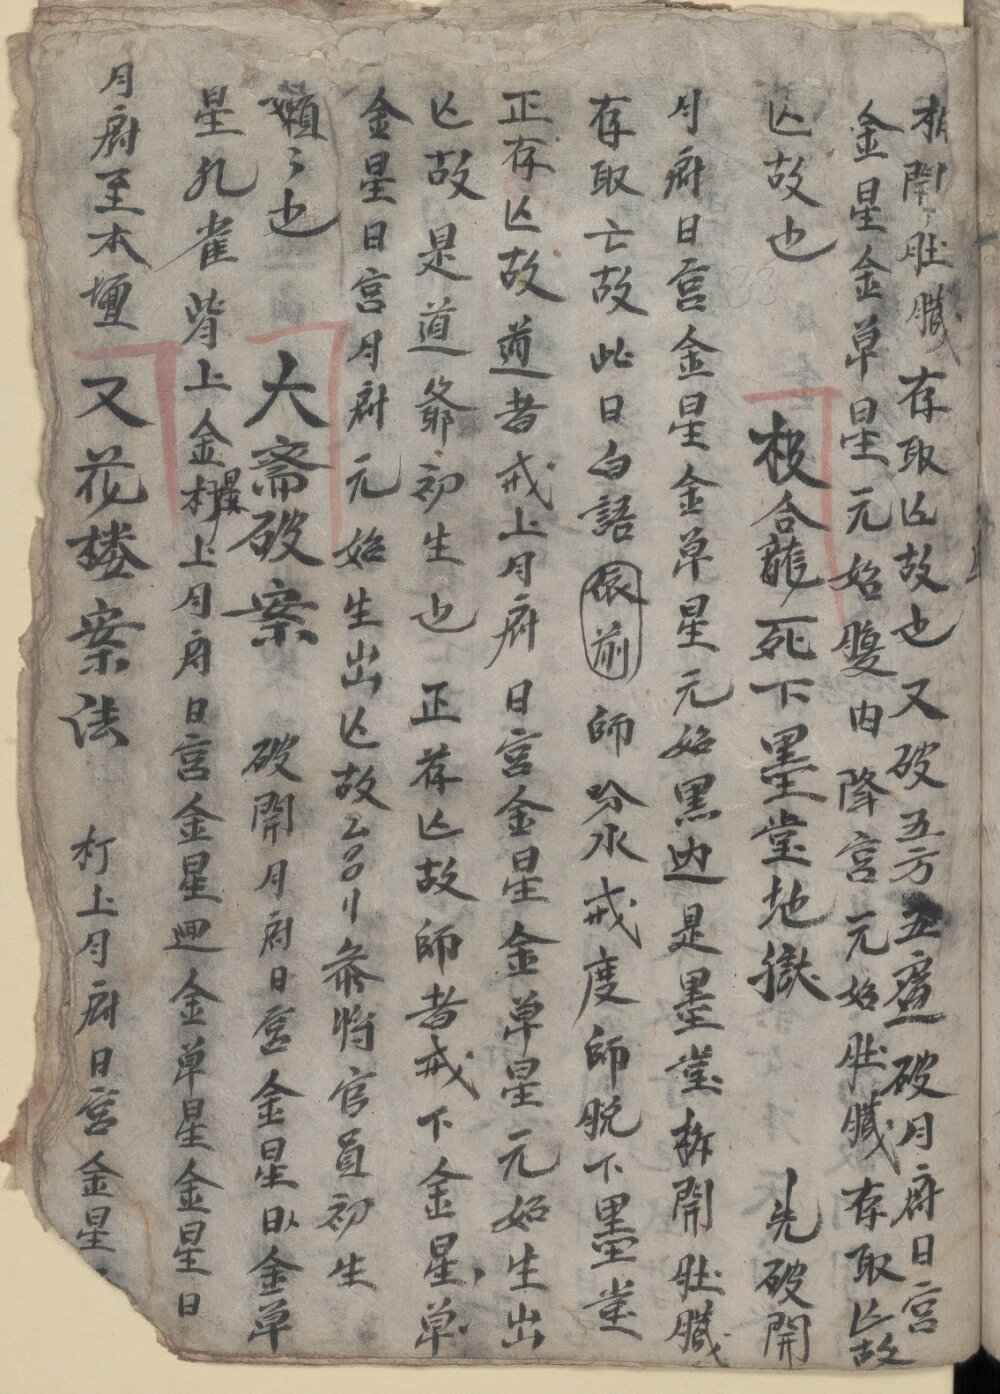 拆開肚臟存取亾故也又破五方五瘟破月府日宮
金星金草星元始腹内降宮元始肚臟存取亾故
亾故也
板合龍死下墨堂地獄 先破開
月府日宮金星金草星元始黑边是墨堂拆開肚臟
存取亡故此日白語依前師吩水戒度師脱下墨堂
正存亾故道者戒上月府日宮金星金草星元始生出
亾故是道爺初生也正存亾故師者戒下金星草
金星日宮月府元始生出亾故 叅将官員初生
也
大斎破案 破開月府日宮金星以金草
星孔雀背上金橑上月府日宮金星迴金草星金星日
月府至本壇
又花楼案法 打上月府日宮金星